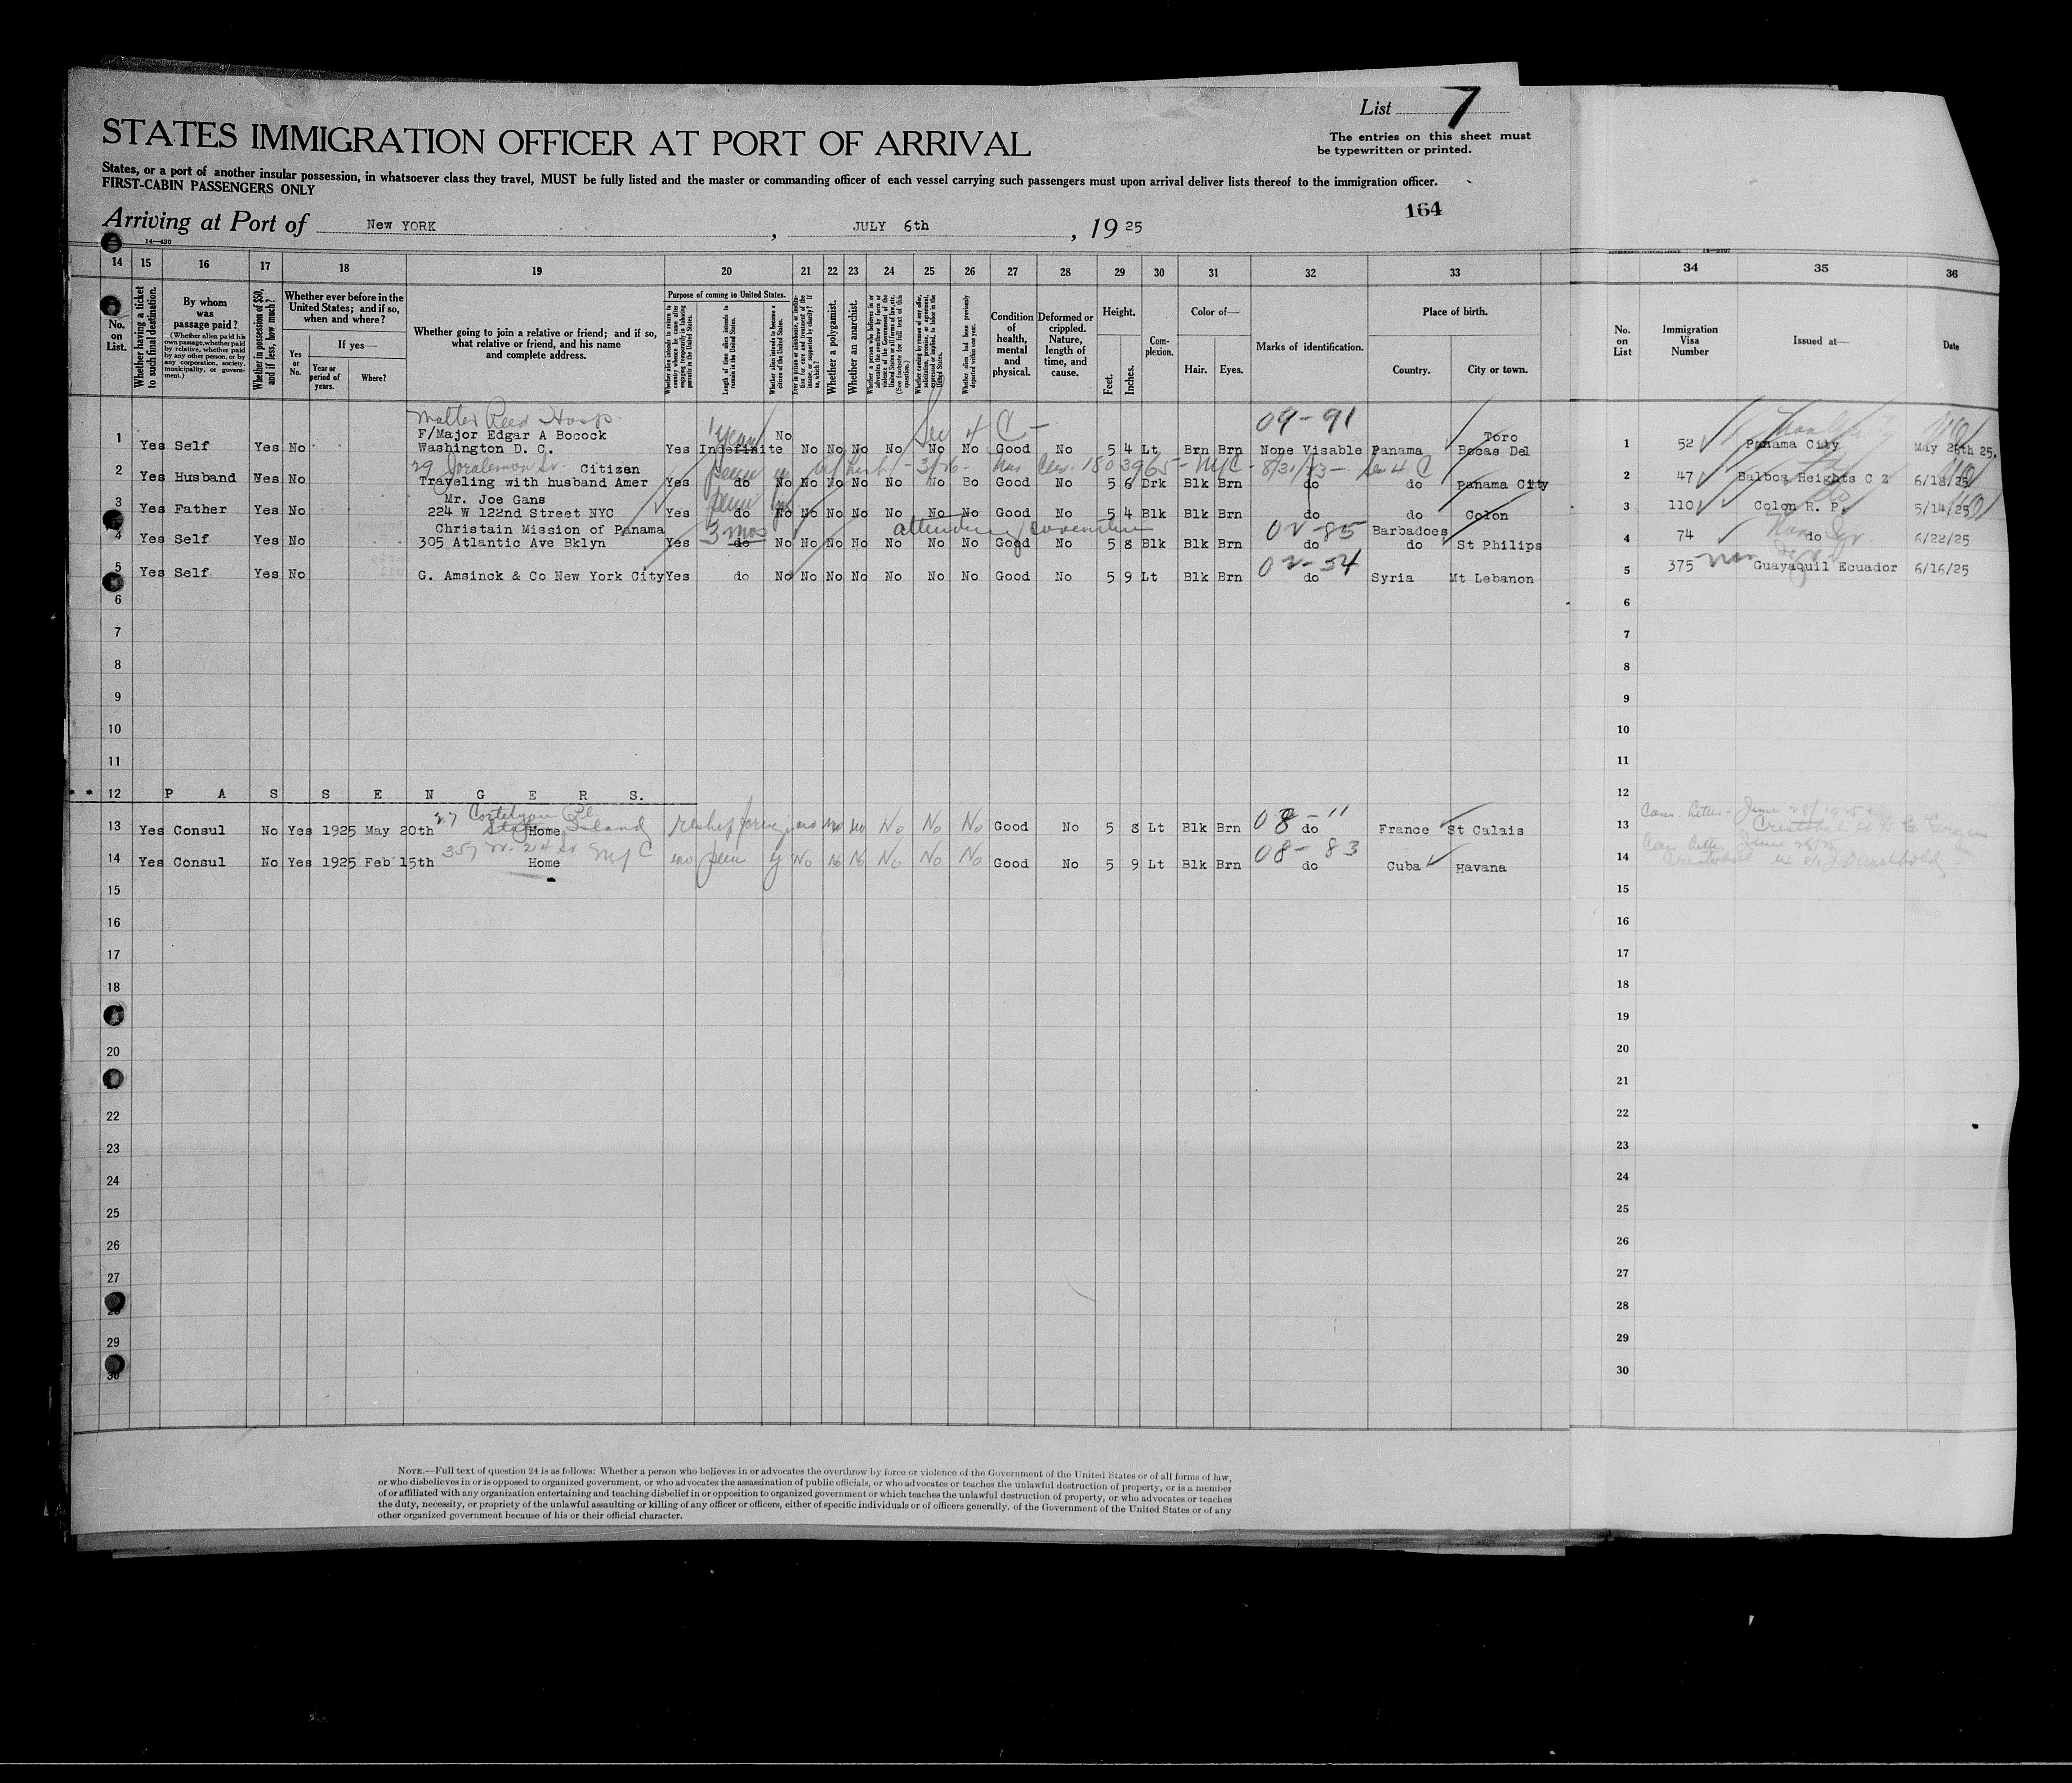 List 7
STATES IMMIGRATION OFFICER AT PORT OF ARRIVAL
The entries on this sheet must
be typewritten or printed.
States, or a port of another insular possession, in whatsoever class they travel, MUST be fully listed and the master or commanding officer of each vessel carrying such passengers must upon arrival deliver lists thereof to the immigration officer.
FIRST-CABIN PASSENGERS ONLY
164
Arriving at Port of New YORK, JULY 6th, 1925
14—430
14 15 16 17 18 19 20 21 22 23 24 25 26 27 28 29 30 31 32 33 34 35 36
No. on List.
Whether having a ticket to such final destination.
By whom was passage paid?
(Whether alien paid his own passage, whether paid by relative, whether paid by any other person, or by any corporation, society, municipality, or government.)
Whether in possession of $50, and if less, how much?
Whether ever before in the United States; and if so, when and where?
Yes or No.
If yes—
Year or period of years.
Where?
Whether going to join a relative or friend; and if so, what relative or friend, and his name and complete address.
Purpose of coming to United States.
Whether alien intends to return to country whence he came after engaging temporarily in laboring pursuits in the United States.
Length of time alien intends to remain in the United States.
Whether alien intends to become a citizen of the United States.
Whether a polygamist.
Whether an anarchist.
Condition of health, mental and physical.
Deformed or crippled. Nature, length of time, and cause.
Height.
Feet.
Inches.
Complexion.
Color of—
Hair.
Eyes.
Marks of identification.
Place of birth.
Country.
City or town.
No. on List
Immigration Visa Number
Issued at—
Date
Walter Reed Hosp.
1 Yes Self Yes No F/Major Edgar A Bocock Washington D. C. Yes Indefinite 1 year No No No No No No No Good No 5 4 Lt Brn Brn None Visable 09-91 Panama Toro Bocas Del 1 52 Panama City May 28th 25.
Sec 4 C
29 Joralemon St.
2 Yes Husband Yes No Citizen Traveling with husband Amer Yes do No No No No No No Bo Good No 5 6 Drk Blk Brn do do Panama City 2 47 Balboa Heights C Z 6/18/25
3 Yes Father Yes No Mr. Joe Gans 224 W 122nd Street NYC Yes do No No No No No No No Good No 5 4 Blk Blk Brn do do Colon 3 110 Colon R. P. 5/14/25
4 Yes Self Yes No Christain Mission of Panama 305 Atlantic Ave Bklyn Yes do 3 mos No No No No No No No Good No 5 8 Blk Blk Brn do 02-85 Barbadoes do St Philips 4 74 do 6/22/25
attending convention
5 Yes Self Yes No G. Amsinck & Co New York City Yes do No No No No No No No Good No 5 9 Lt Blk Brn do 02-54 Syria Mt Lebanon 5 375 Guayaquil Ecuador 6/16/25
6 6
7 7
8 8
9 9
10 10
11 11
* * 12 P A S S E N G E R S. 12
13 Yes Consul No Yes 1925 May 20th Home No No No Good No 5 8 Lt Blk Brn do 08-11 France St Calais 13
357 W. 24 St NYC
14 Yes Consul No Yes 1925 Feb 15th Home No No No No No No Good No 5 9 Lt Blk Brn do 08-83 Cuba Havana 14
15 15
16 16
17 17
18 18
19
20 20
21
22 22
23 23
24 24
25 25
26 26
27 27
28
29 29
30 30
NOTE.—Full text of question 24 is as follows: Whether a person who believes in or advocates the overthrow by force or violence of the Government of the United States or of all forms of law,
or who disbelieves in or is opposed to organized government, or who advocates the assassination of public officials, or who advocates or teaches the unlawful destruction of property, or is a member
of or affiliated with any organization entertaining and teaching disbelief in or opposition to organized government or which teaches the unlawful destruction of property, or who advocates or teaches
the duty, necessity, or propriety of the unlawful assaulting or killing of any officer or officers, either of specific individuals or of officers generally, of the Government of the United States or of any
other organized government because of his or their official character.